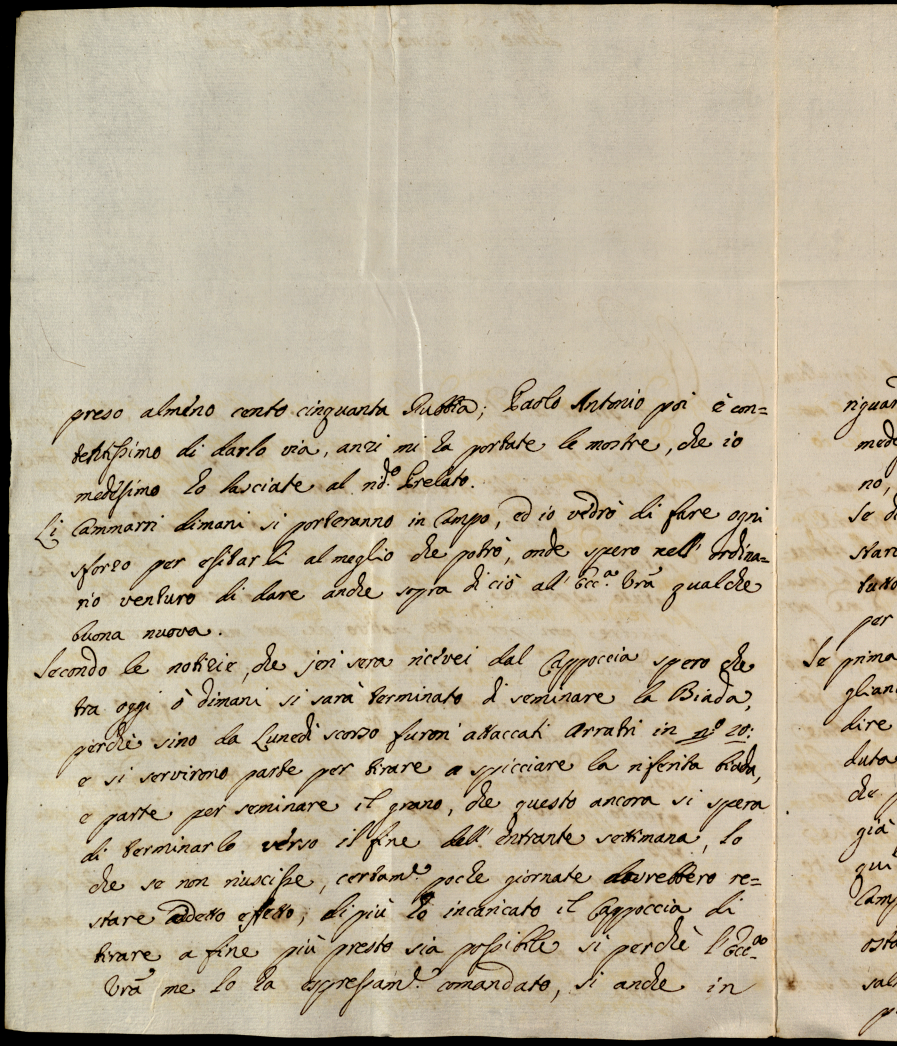 preso alméno cento cinquanta Rubbia; Paolo Antonio poi è con=
tentissimo di darlo via, anzi mi hà portate le mostre, che io
medesimo hò lasciate al nd.º Prelato.
Li Cammarri dimani si porteranno in Campo, ed io vedrò di fare ogni
sforzo per esitarli al meglio che potrò, onde spero nell' ordina=
rio venturo di dare anche sopra di ciò all' Ecc.ª Vrã qualche
buona nuova.
Secondo le notizie, che jeri sera ricevei dal Cappoccia spero che
tra oggi ò dimani si sarà terminato di seminare la Biada,
perche sino da Lunedi scorso furoni attaccati Arratri in n.º 20:
e si servirono parte per tirare a spicciare la riferita biada,
e parte per seminare il grano, che questo ancora si spera
di terminarlo verso il fine dell' entrante settimana, lo
che se non riuscisse, certam.e poche giornate dovrebbero re=
stare addetto effetto; di più hò incaricato il Cappoccia di
tirare a fine più presto sia possibile si perchè l' Ecc.ª
Vrã me lo hà espressam.e comandato, si anche in
riguar
mede
no,
Se d
stan
tutto
per
Se prima
glian
dire
duta
che p
già
qui
Camp
osta
sal
p